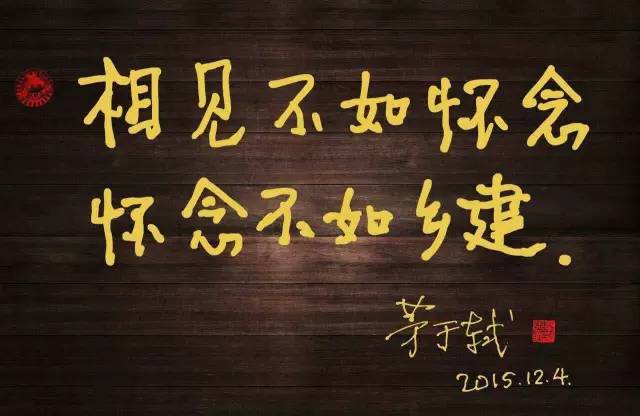 相见不如怀念
怀念不如乡建.
茅于轼
2015.12.4.